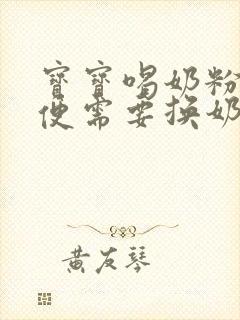 寶寶喝奶粉
便需要換奶
黃友琴